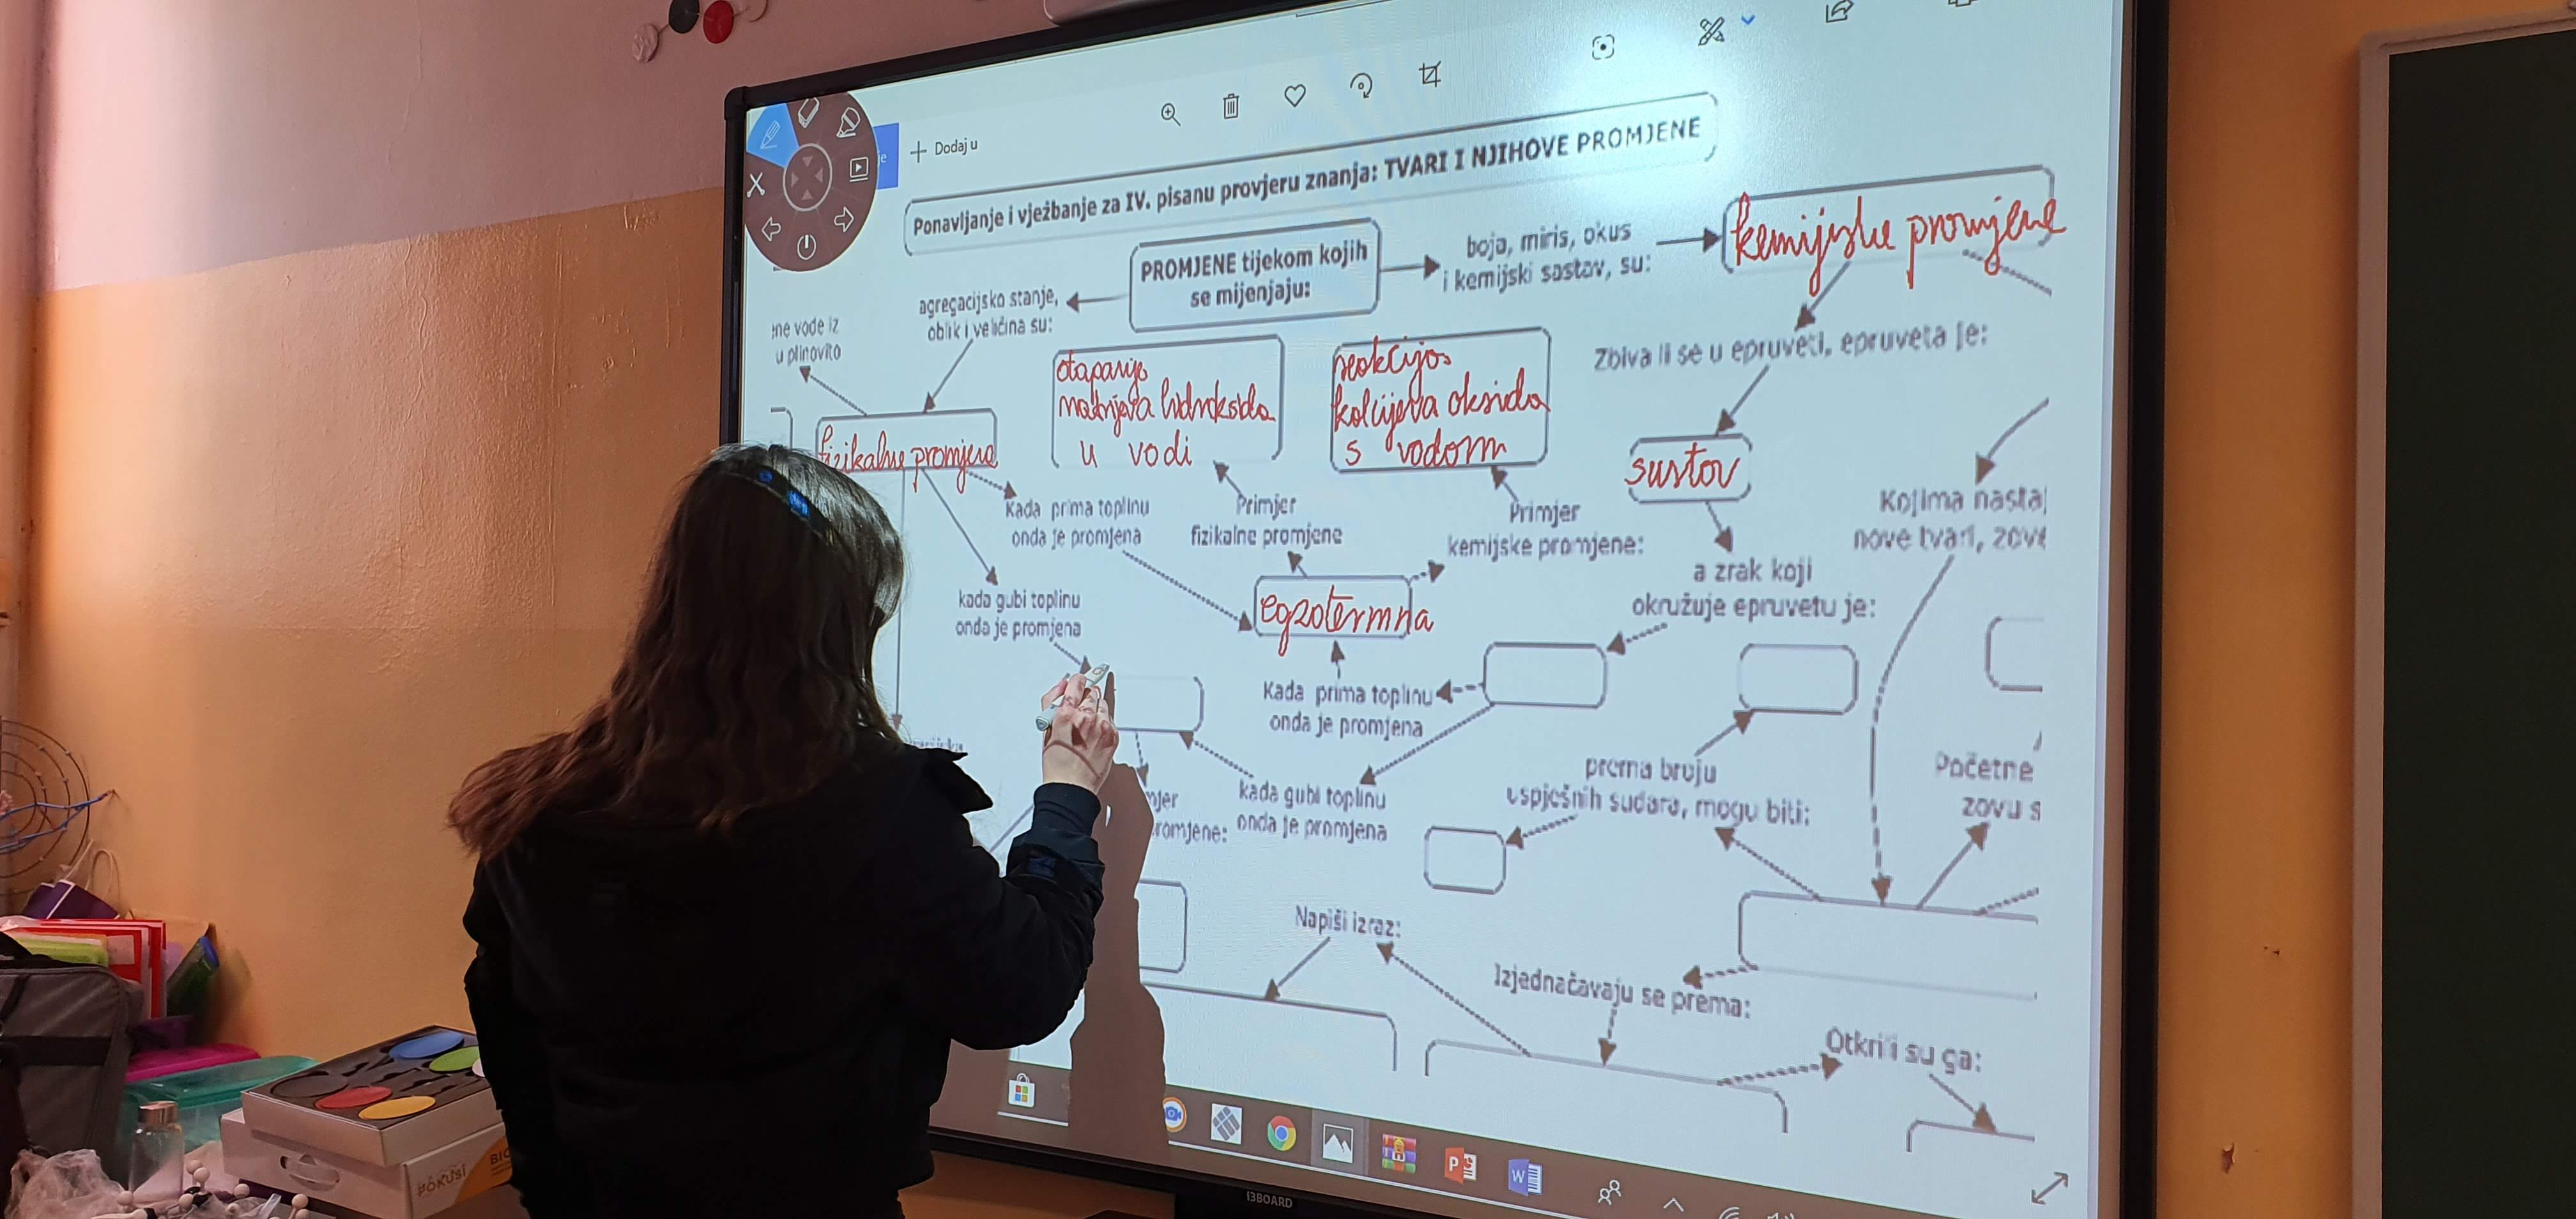 Dodaj u
Ponavljanje i vježbanje za IV. pisanu provjeru znanja: TVARI I NJIHOVE PROMJENE
PROMJENE tijekom kojih
se mijenjaju:
boja, miris, okus
i kemijski sastav, su:
kemijske promjene
agregacijsko stanje,
oblik i veličina su:
ne vode iz
u plinovito
fizikalne promjene
otapanje
natrijeva hidroksida
u vodi
reakcija
kalcijeva oksida
s vodom
Zbiva li se u epruveti, epruveta je:
sustav
Kada prima toplinu
onda je promjena
Primjer
fizikalne promjene
Primjer
kemijske promjene:
Kojima nasta
nove tvari, zov
a zrak koji
okružuje epruvetu je:
kada gubi toplinu
onda je promjena
egzotermna
Kada prima toplinu
onda je promjena
kada gubi toplinu
onda je promjena
mjer
romjene:
prema broju
uspješnih sudara, mogu biti:
Početne
zovu s
Napiši izraz:
Izjednačavaju se prema:
Otkrili su ga:
i3BOARD